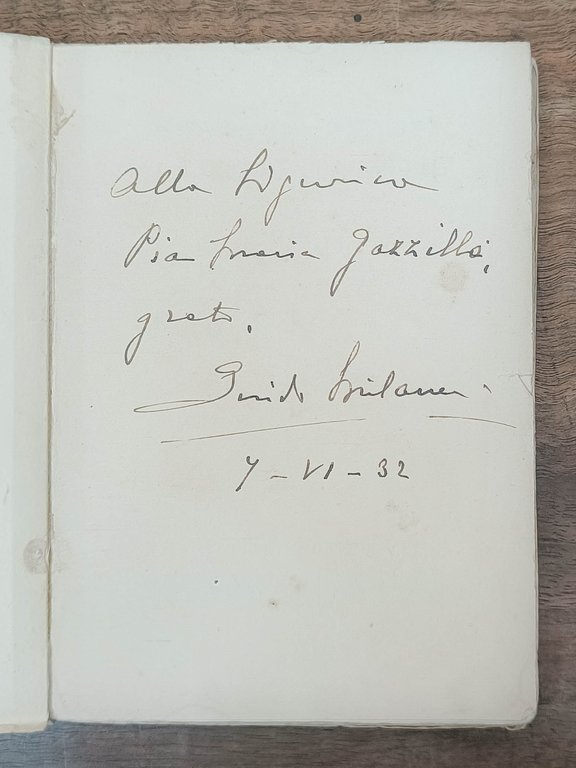 Alla Signorina
Pia Maria Gazzilla,
grato,
Guido Milanesi
7-VI-32